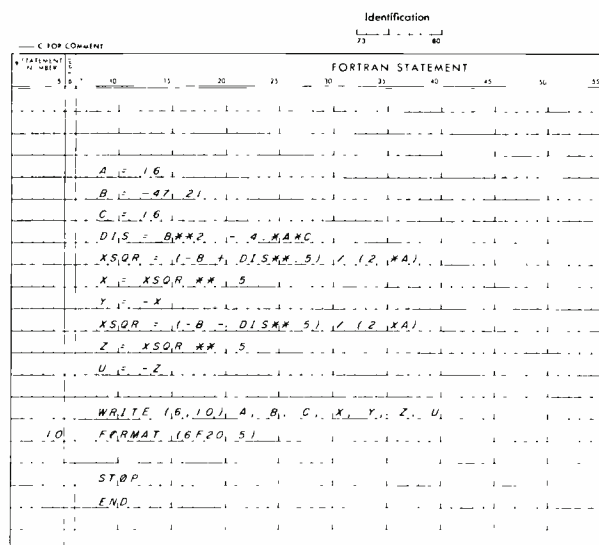 Identification
73 80
C FOR COMMENT
STATEMENT NUMBER
FORTRAN STATEMENT
5 6 7 10 15 20 25 30 35 40 45 50 55
A = 16
B = -47 21
C = 16
DIS = B**2 - 4.*A*C
XSQR = (-B + DIS** 5) / (2 *A)
X = XSQR ** 5
Y = -X
XSQR = (-B - DIS** 5) / (2 *A)
Z = XSQR ** 5
U = -Z
WRITE (6,10) A, B, C, X, Y, Z, U
10 FØRMAT (6F20 5)
STØP
END